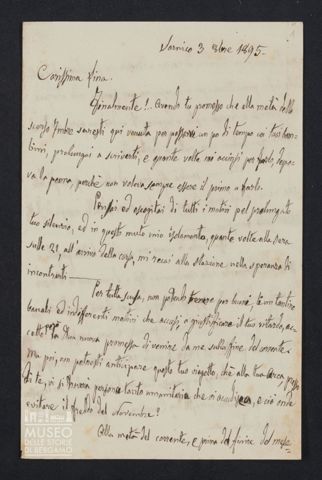 Sarnico 3 8bre 1895.
Carissima Nina.
Finalmente!.. Avendo tu promesso che alla metà dello
scorso 7mbre saresti qui venuta per passare un po di tempo coi tuoi bam-
bini, prolungai a scriverti, e quante volte mi accinsi per farlo, depo-
neva la penna, perchè non voleva sempre essere il primo a farlo.
Pensai ed escogitai di tutti i motivi pel prolungato
tuo silenzio, ed in questo muto mio isolamento, quante volte alla sera
sulle 21, all'arrivo della corsa, mi recai alla Stazione nella speranza di
incontrarti
Per tutta scusa, non potendo per buoni, ti in tanti
banali ed indifferenti motivi che accusi, a giustificare il tuo ritardo, ac-
cetto la tua nuova promessa di venire da me sulla fine del corrente.
Ma poi, non potresti anticipare questo tuo viaggio, chè alla tua
di te, vi si troverà persona tanto umanitaria che ci accudisca, e ciò onde
evitare il freddo del Novembre?
Alla metà del corrente, e prima del finire del mese
MUSEO
DELLE STORIE
DI BERGAMO